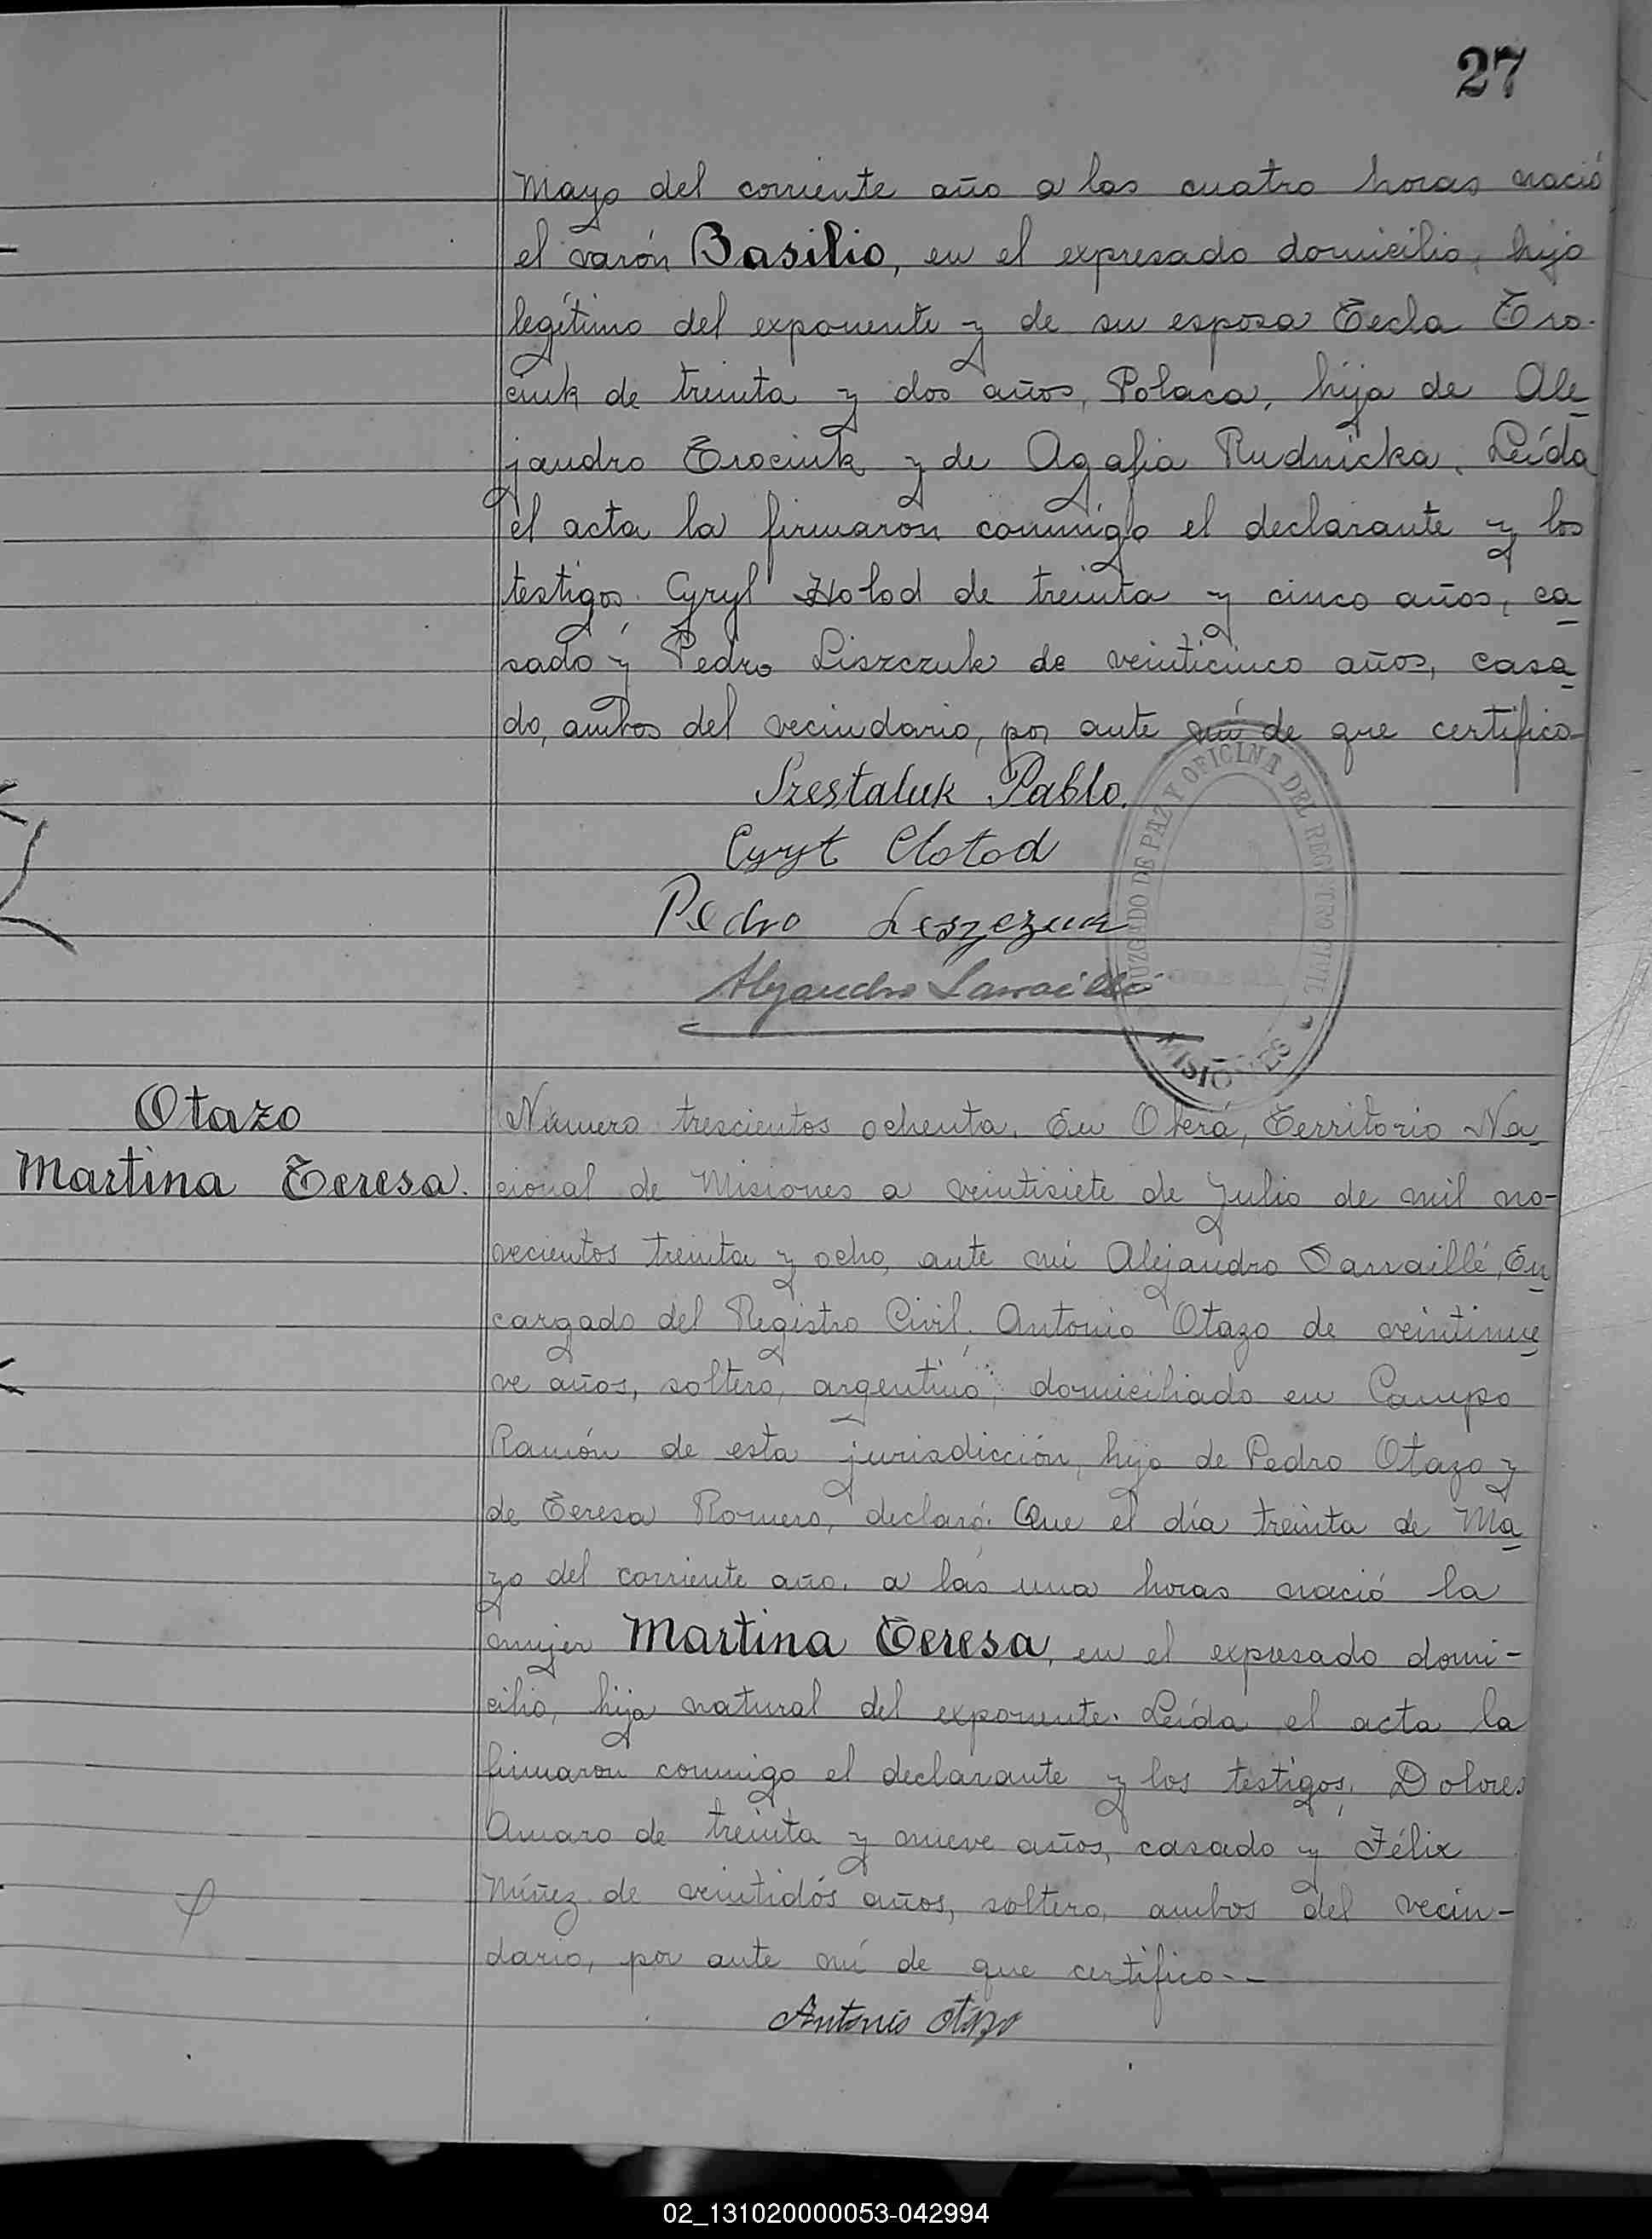 27
Mayo del corriente año a las cuatro horas nació
el varón Basilio, en el expresado domicilio, hijo
legítimo del exponente y de su esposa Tecla Tro-
ciuk de treinta y dos años, Polaca, hija de Ale-
jandro Trociuk y de Agafia Rudnicka. Leída
el acta la firmaron conmigo el declarante y los
testigos. Cyryl Holod de treinta y cinco años, ca-
sado y Pedro Liszczuk de veinticinco años, casa-
do, ambos del vecindario, por ante mí de que certifico-
Szestaluk Pablo.
Cyryt Clotod
Pedro Leszczuk
Alejandro Sarraillé
JUZGADO DE PAZ Y OFICINA DEL REGISTRO CIVIL
MISIONES
Otazo
Martina Teresa.
Número trescientos ochenta. En Oberá, Territorio Na-
cional de Misiones a veintisiete de Julio de mil no-
vecientos treinta y ocho, ante mí Alejandro Sarraillé, En-
cargado del Registro Civil. Antonio Otazo de veintinue-
ve años, soltero, argentino, domiciliado en Campo
Ramón de esta jurisdicción, hijo de Pedro Otazo y
de Teresa Romero, declaró: Que el día treinta de Ma-
yo del corriente año, a las una horas nació la
mujer Martina Teresa, en el expresado domi-
cilio, hija natural del exponente. Leída el acta la
firmaron conmigo el declarante y los testigos, Dolores
Amaro de treinta y nueve años, casado y Félix
Núñez de veintidós años, soltero, ambos del vecin-
dario, por ante mí de que certifico--
Antonio Otazo
02_131020000053-042994